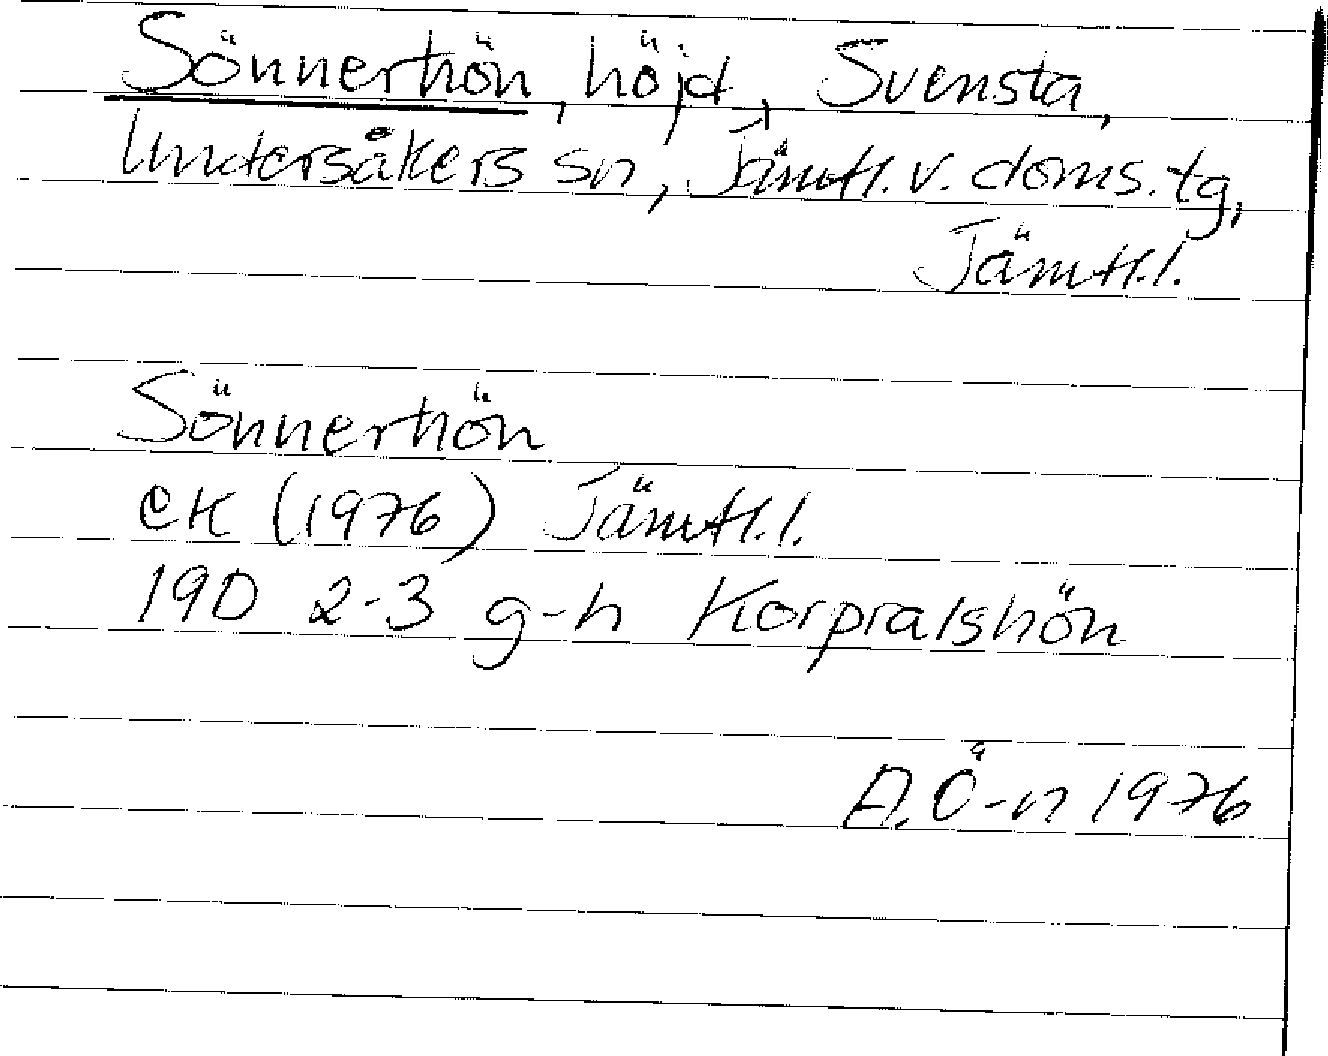 Sönnerhön, höjd, Svensta,
Undersåkers sn, Jämtl. v. doms. tg,
Jämtl. l.
Sönnerhön
eK (1976) Jämtl. l.
19D 2-3 g-h Korpralshön
A. Ö-n 1976